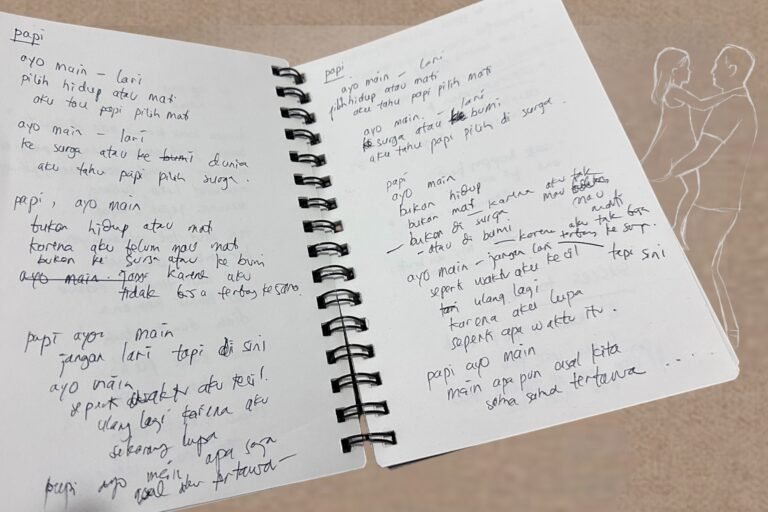 papi
ayo main – lari
pilih hidup atau mati
aku tau papi pilih mati
ayo main – lari
ke surga atau ke bumi dunia
aku tahu papi pilih surga.
papi, ayo main
bukan hidup atau mati
karena aku belum mau mati
bukan ke surga atau ke bumi
ayo main. karena aku
tidak bisa terbang kesana.
papi ayo main
jangan lari tapi di sini
ayo main
seperti waktu aku kecil.
ulang lagi karena aku
sekarang lupa
papi ayo main apa saja
asal dan tertawa –
papi
ayo main – lari
pilih hidup atau mati
aku tahu papi pilih mati
ayo main. lari
ke surga atau ke bumi
aku tahu papi pilih di surga.
papi
ayo main
bukan hidup
bukan mati – karena aku tak mau mati
bukan di surga
– atau di bumi – karena aku tak bisa terbang ke surga.
ayo main – jangan lari tapi sini
seperti waktu aku kecil
ulang lagi
karena aku lupa
seperti apa waktu itu.
papi ayo main
main apa pun asal kita
sama sama tertawa ....